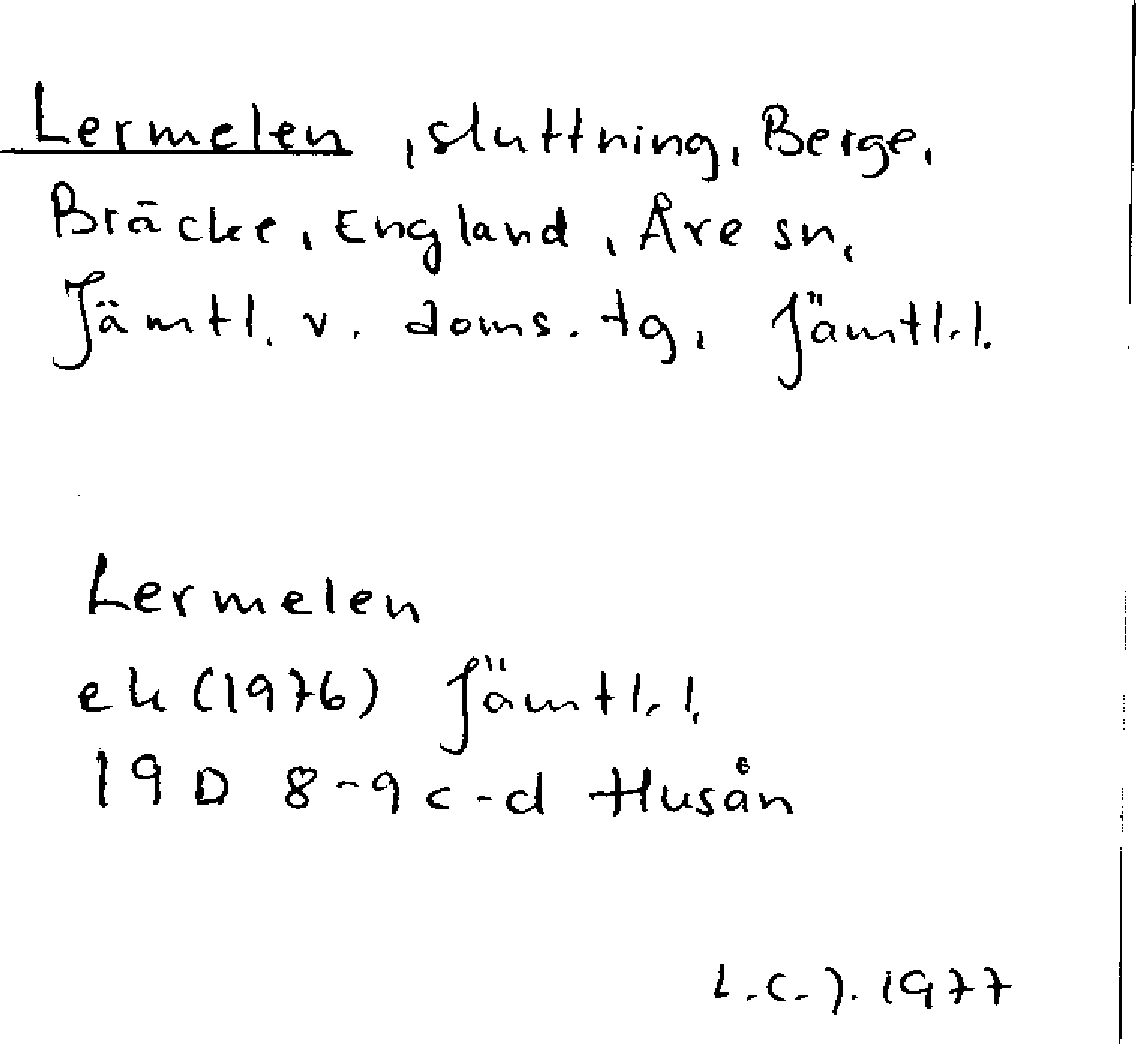 Lermelen, sluttning, Berge,
Bräcke, England, Åre sn,
Jämtl. v. doms. tg, Jämtl.l.
Lermelen
ek (1976) Jämtl.l.
19 D 8-9 c-d Husån
L.C.J. 1977